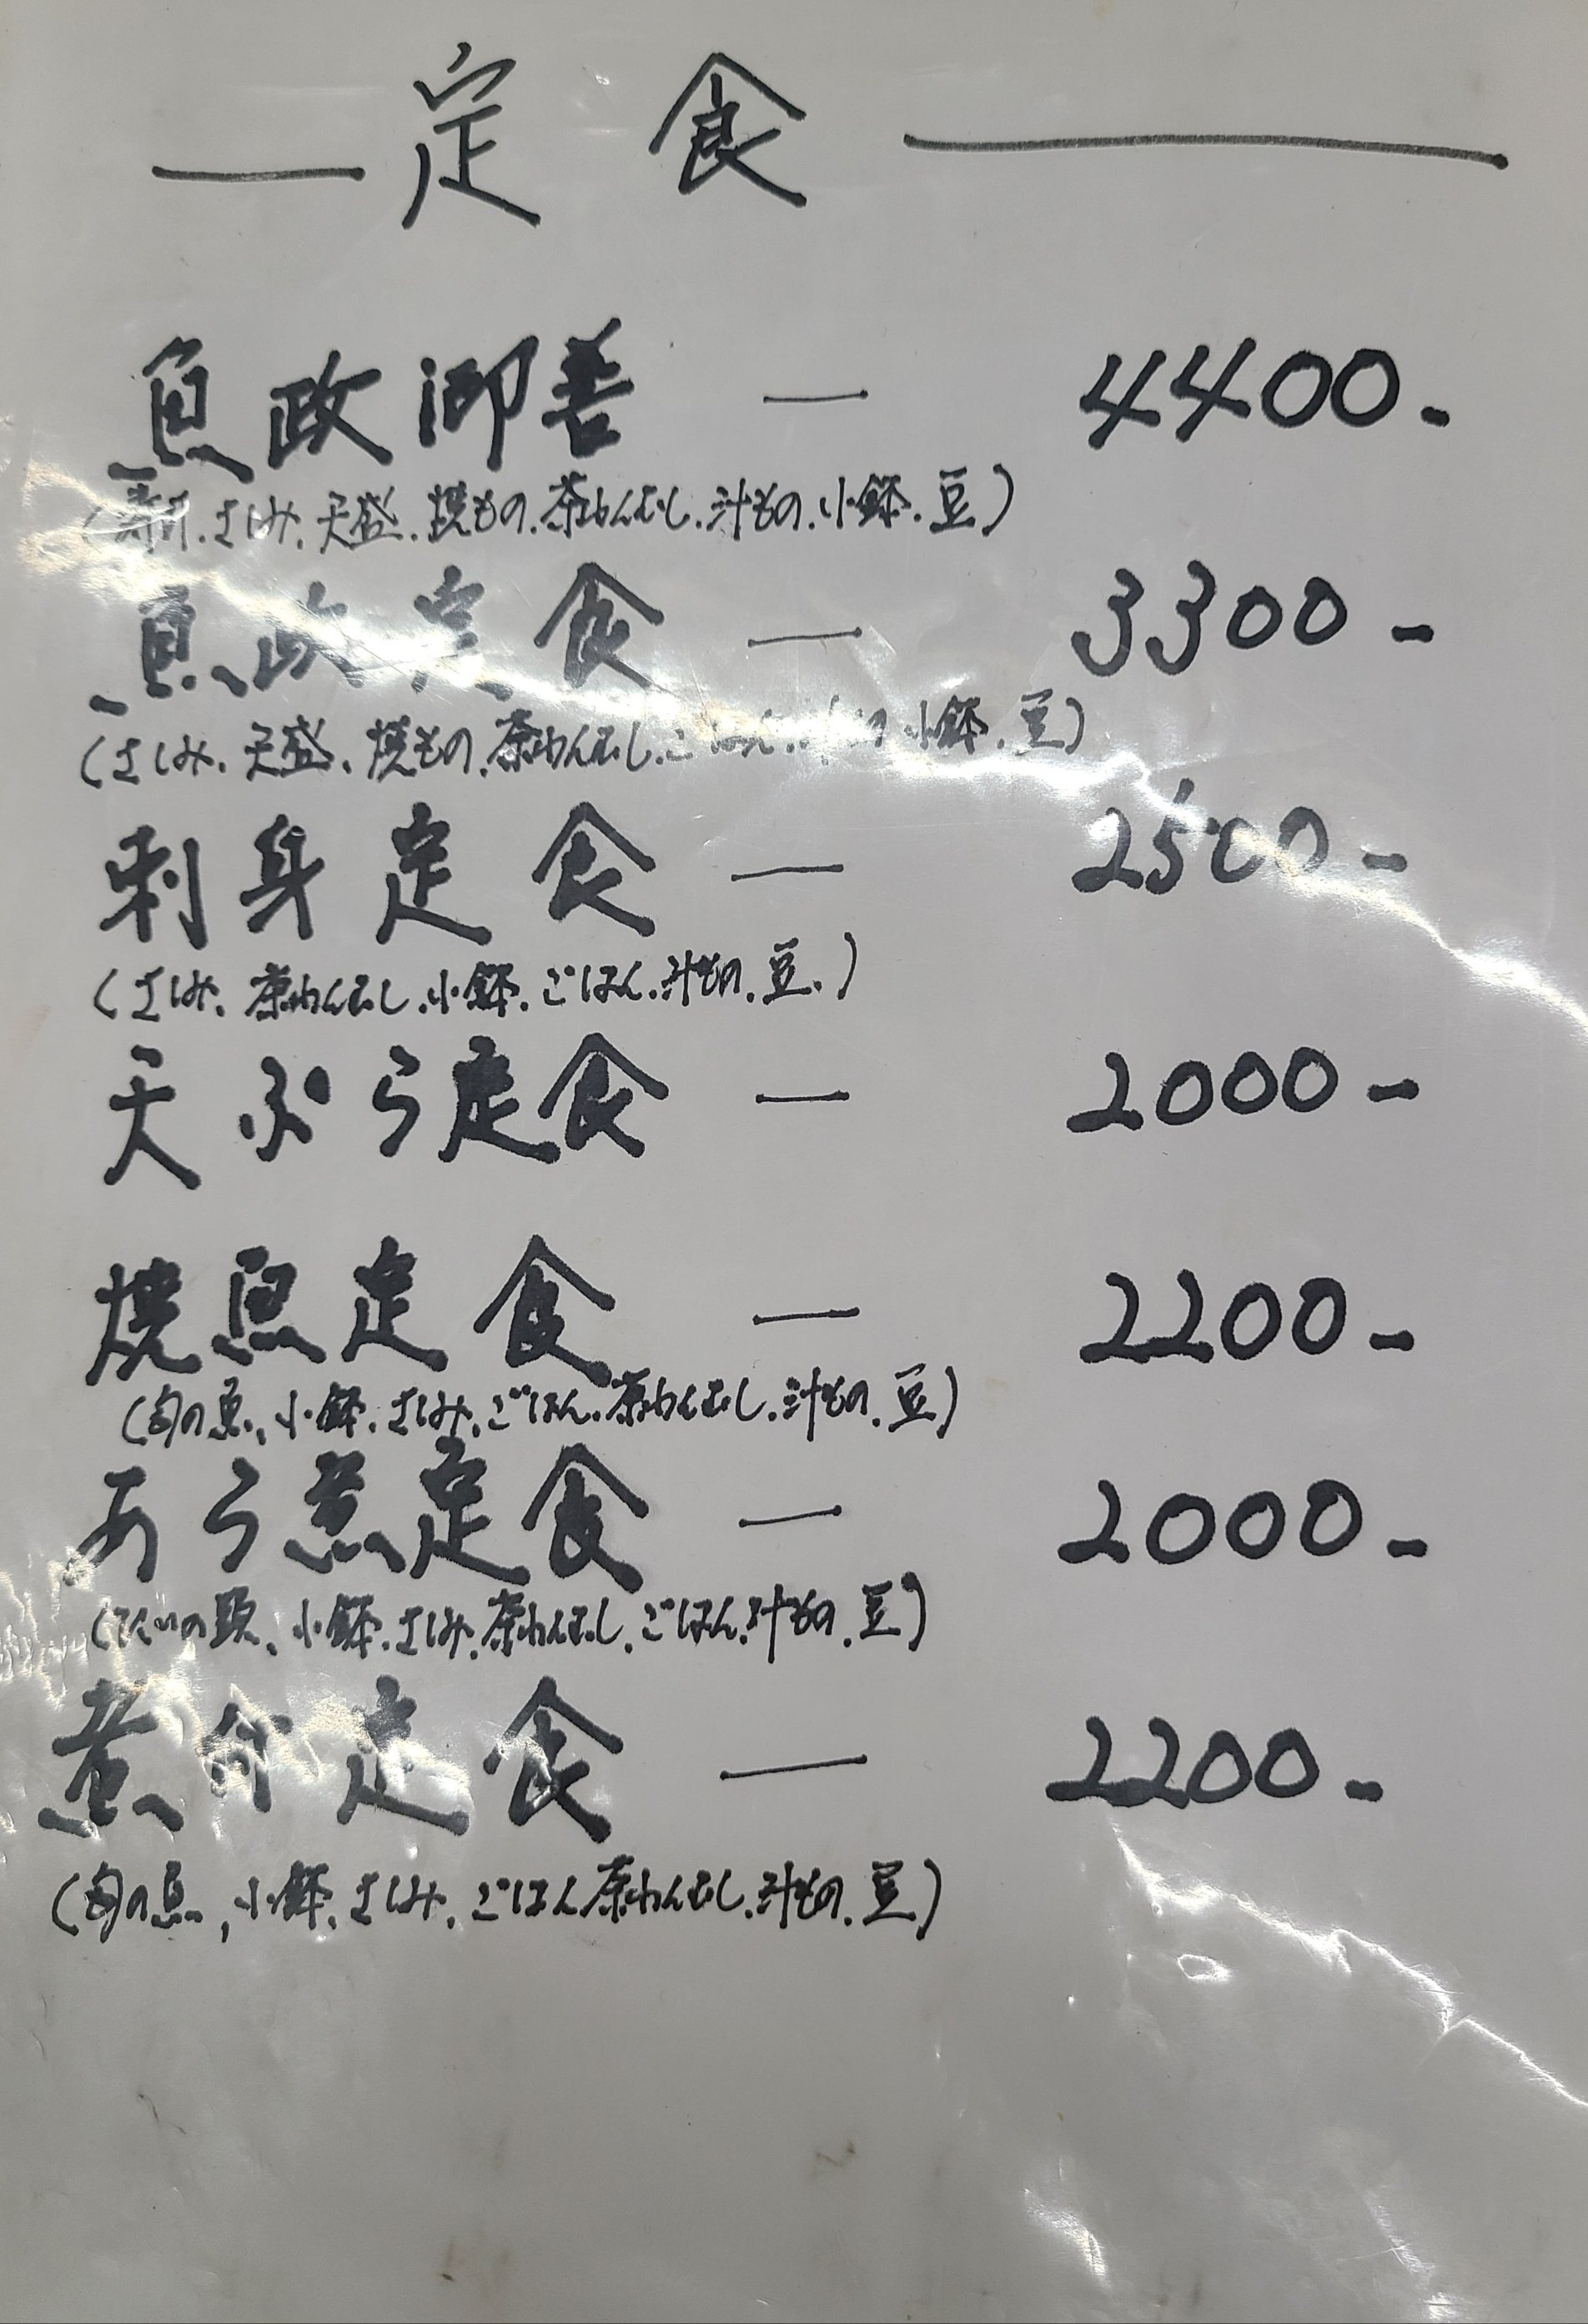 定食
魚政御善 — 4400-
(寿司.さしみ.天盛.焼もの.茶わんむし.汁もの.小鉢.豆)
魚政定食 — 3300-
(さしみ.天盛.焼もの.茶わんむし.ごはん.汁もの.小鉢.豆)
刺身定食 — 2500-
(さしみ.茶わんむし.小鉢.ごはん.汁もの.豆.)
天ぷら定食 — 2000-
焼魚定食 — 2200-
(旬の魚、小鉢.さしみ.ごはん.茶わんむし.汁もの.豆)
あら煮定食 — 2000-
(たいの頭、小鉢.さしみ.茶わんむし.ごはん.汁もの.豆)
煮付定食 — 2200-
(旬の魚,小鉢.さしみ.ごはん茶わんむし.汁もの.豆)